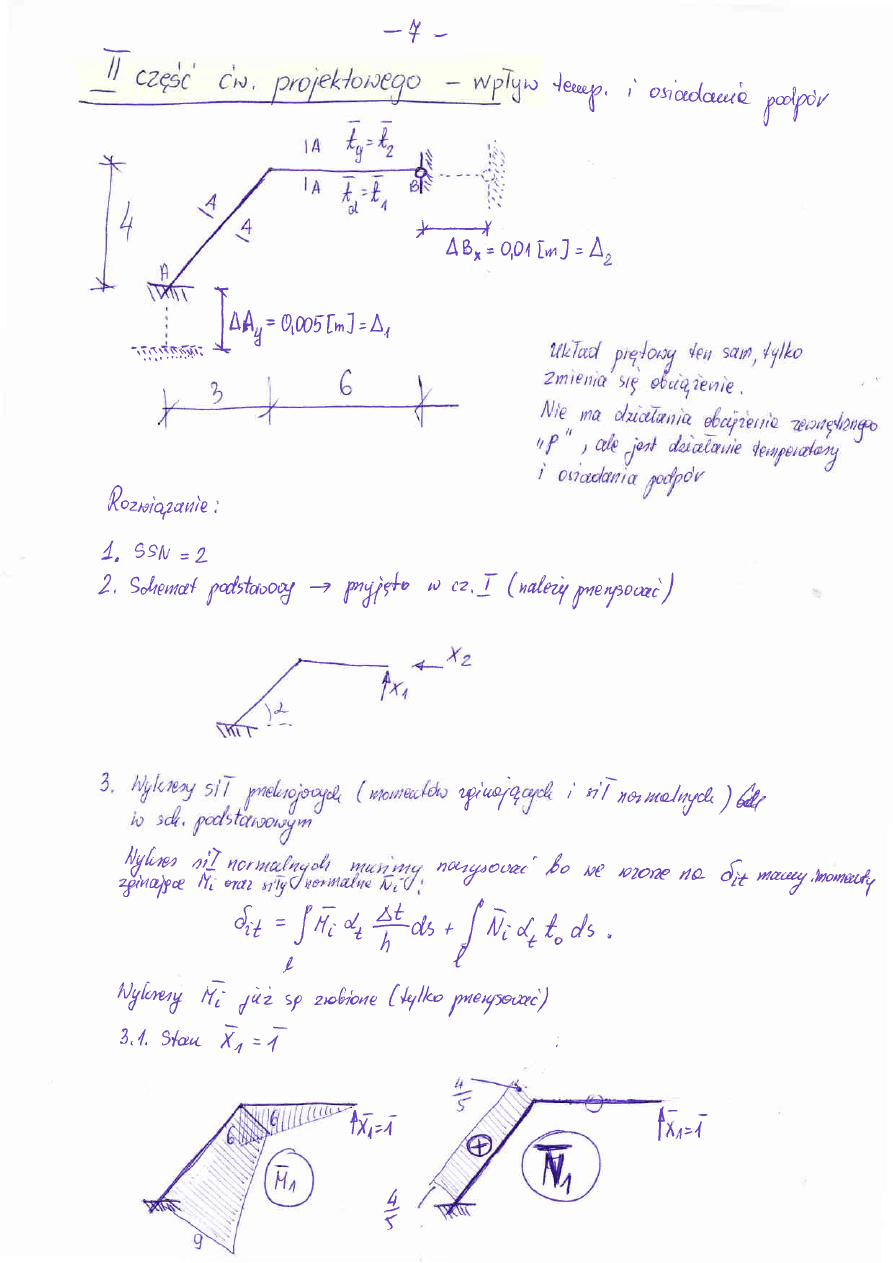 - 7 -
II część ćw. projektowego - wpływ temp. i osiadania podpór
|A t̄g = t̄2
|A t̄d = t̄1
B
A
A
4
A
ΔBx = 0,01 [m] = Δ2
ΔAy = 0,005 [m] = Δ1
3 6
Układ prętowy ten sam, tylko
zmienia się obciążenie.
Nie ma działania obciążenia zewnętrznego
"P", ale jest działanie temperatury
i osiadania podpór
Rozwiązanie:
1. SSN = 2
2. Schemat podstawowy → przyjęto w cz. I (należy przerysować)
X2
X1
α
3. Wykresy sił przekrojowych (momentów zginających i sił normalnych)
w sch. podstawowym
Wykres sił normalnych musimy narysować bo we wzorze na δit mamy momenty
zginające M̄i oraz siły normalne N̄i:
δit = ∫ M̄i αt Δt/h ds + ∫ N̄i αt t0 ds.
l l
Wykresy M̄i już są zrobione (tylko przerysować)
3.1. Stan X̄1 = 1̄
6 6 X̄1=1̄
M̄1
9
4/5
+
4/5
X̄1=1̄
N̄1